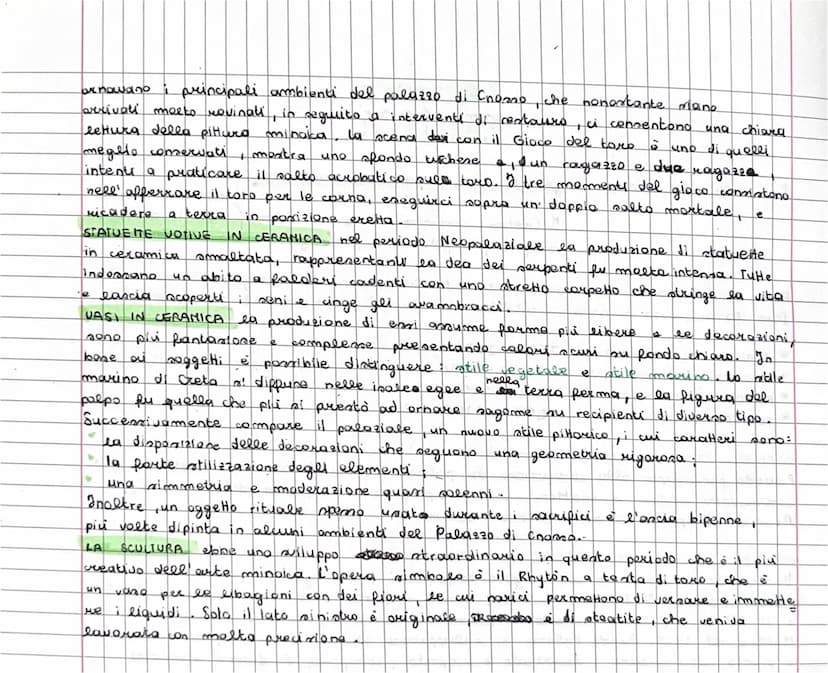 ornavano i principali ambienti del palazzo di Cnosso, che nonostante siano
arrivati molto rovinati, in seguito a interventi di restauro, ci consentono una chiara
lettura della pittura minoica. La scena con il Gioco del toro è uno di quelli
meglio conservati, mostra uno sfondo un ragazzo e due ragazze,
intenti a praticare il salto acrobatico sul toro. I tre momenti del gioco consistono
nell'afferrare il toro per le corna, eseguirci sopra un doppio salto mortale, e
ricadere a terra in posizione eretta.
STATUETTE VOTIVE IN CERAMICA nel periodo Neopalaziale la produzione di statuette
in ceramica smaltata, rappresentanti la dea dei serpenti fu molto intensa. Tutte
indossano un abito a falde cadenti con uno stretto corpetto che stringe la vita
e lascia scoperti i seni e cinge gli avambracci.
VASI IN CERAMICA la produzione di essi assume forme più libere e le decorazioni,
sono più fantasiose e complesse presentando colori scuri su fondo chiaro. In
base ai soggetti è possibile distinguere: stile vegetale e stile marino. Lo stile
marino di Creta si diffuse nelle isole egee e nella terra ferma, e la figura del
polpo fu quella che più si prestò ad ornare sagome su recipienti di diverso tipo.
Successivamente compare il palaziale, un nuovo stile pittorico, i cui caratteri sono:
• la disposizione delle decorazioni che seguono una geometria rigorosa;
• la forte stilizzazione degli elementi;
• una simmetria e moderazione quasi solenni.
Inoltre, un oggetto rituale spesso usato durante i sacrifici è l'ascia bipenne,
più volte dipinta in alcuni ambienti del Palazzo di Cnosso.
LA SCULTURA ebbe uno sviluppo straordinario in questo periodo che è il più
creativo dell'arte minoica. L'opera simbolo è il Rhytòn a testa di toro, che è
un vaso per le libagioni con dei fiori, le cui narici permettono di versare e immette
re i liquidi. Solo il lato sinistro è originale, è di steatite, che veniva
lavorata con molta precisione.